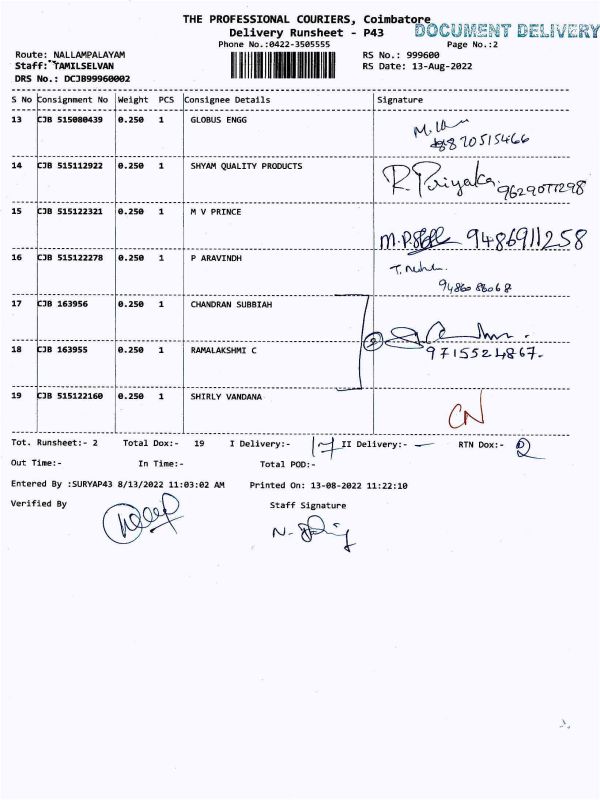 THE PROFESSIONAL COURIERS, Coimbatore
DOCUMENT DELIVERY
Delivery Runsheet - P43
Phone No.:0422-3505555
Page No.:2
Route: NALLAMPALAYAM
RS No.: 999600
Staff: TAMILSELVAN
RS Date: 13-Aug-2022
DRS No.: DCJB99960002
S No Consignment No Weight PCS Consignee Details Signature
13 CJB 515080439 0.250 1 GLOBUS ENGG
8870515466
14 CJB 515112922 0.250 1 SHYAM QUALITY PRODUCTS
R. Priyaka 9629077298
15 CJB 515122321 0.250 1 M V PRINCE
9486911258
16 CJB 515122278 0.250 1 P ARAVINDH
9486088068
17 CJB 163956 0.250 1 CHANDRAN SUBBIAH
18 CJB 163955 0.250 1 RAMALAKSHMI C
9715524867.
19 CJB 515122160 0.250 1 SHIRLY VANDANA
CN
Tot. Runsheet:- 2 Total Dox:- 19 I Delivery:- 17 II Delivery:- — RTN Dox:- 2
Out Time:- In Time:- Total POD:-
Entered By :SURYAP43 8/13/2022 11:03:02 AM Printed On: 13-08-2022 11:22:10
Verified By Staff Signature